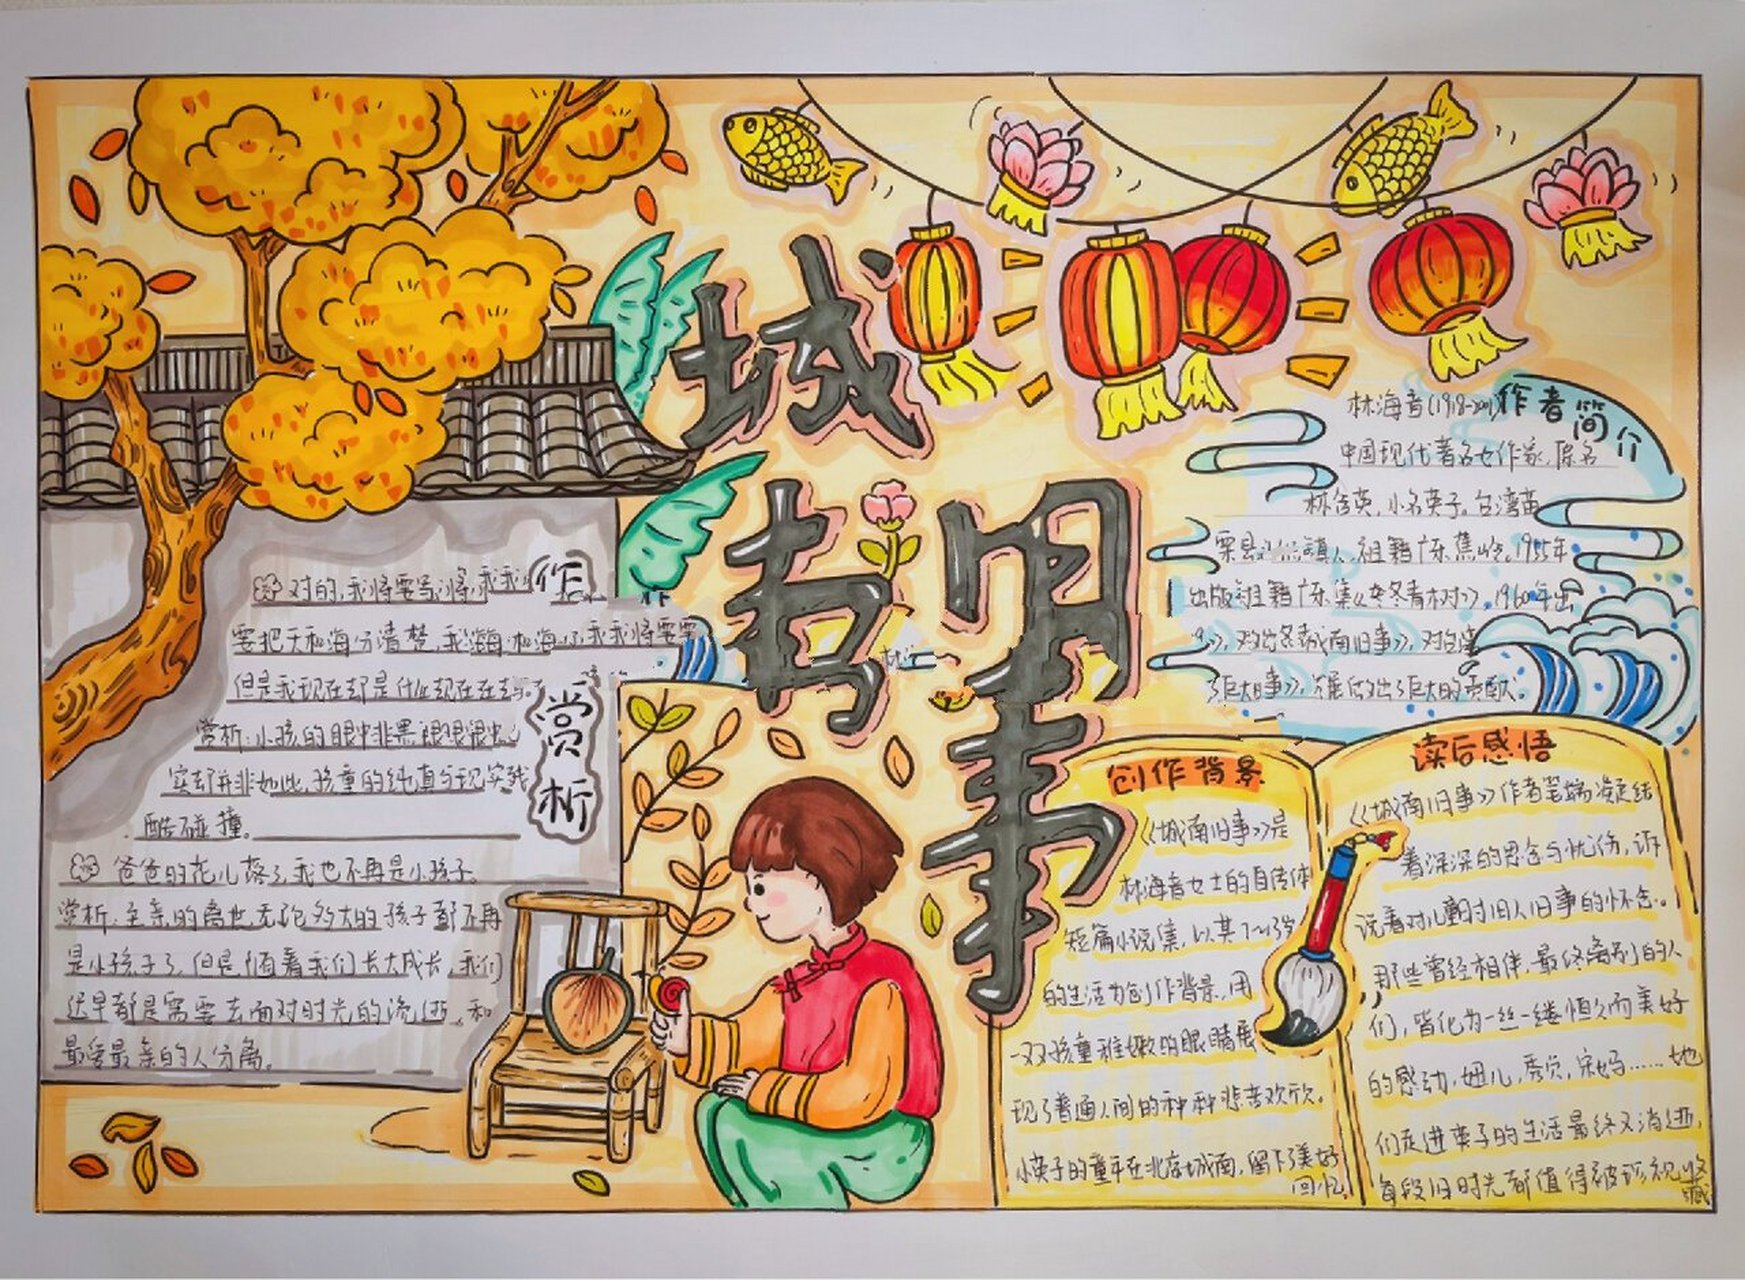 城
南
旧
事
作者简介
林海音(1918-2001)
中国现代著名女作家,原名
林含英,小名英子。台湾苗
栗县 镇人,祖籍广东蕉岭。1955年
出版 祖籍广东集《冬青树》,1960年出
城南旧事》,对台湾
了巨大 事》, 做出了巨大的贡献。
作
赏
析
对的,我将要写,将,我我
要把天和海分清楚,我 海 和海 我我将要要
但是我现在却是什么 现在在去
赏析:小孩的眼中非黑 眼眼眼
实却并非如此,孩童的纯真与现实残
酷碰撞。
爸爸的花儿落了,我也不再是小孩子。
赏析:至亲的离世无论多大的孩子都不再
是小孩子了,但是随着我们长大成长,我们
迟早都是需要去面对时光的流逝,和
最爱最亲的人分离。
创作背景
《城南旧事》是
林海音女士的自传体
短篇小说集,以其7~13岁
的生活为创作背景,用
一双孩童稚嫩的眼睛展
现了普通人间的种种悲苦欢欣。
小英子的童年在北京城南,留下美好
回忆
读后感悟
《城南旧事》作者笔端凝结
着深深的思念与忧伤,诉
说着对儿童时旧人旧事的怀念。
那些曾经相伴,最终离别的人
们,皆化为一丝一缕恒久而美好
的感动,妞儿,秀贞,宋妈……她
们走进英子的生活最终又消逝,
每段旧时光都值得被珍视收
藏